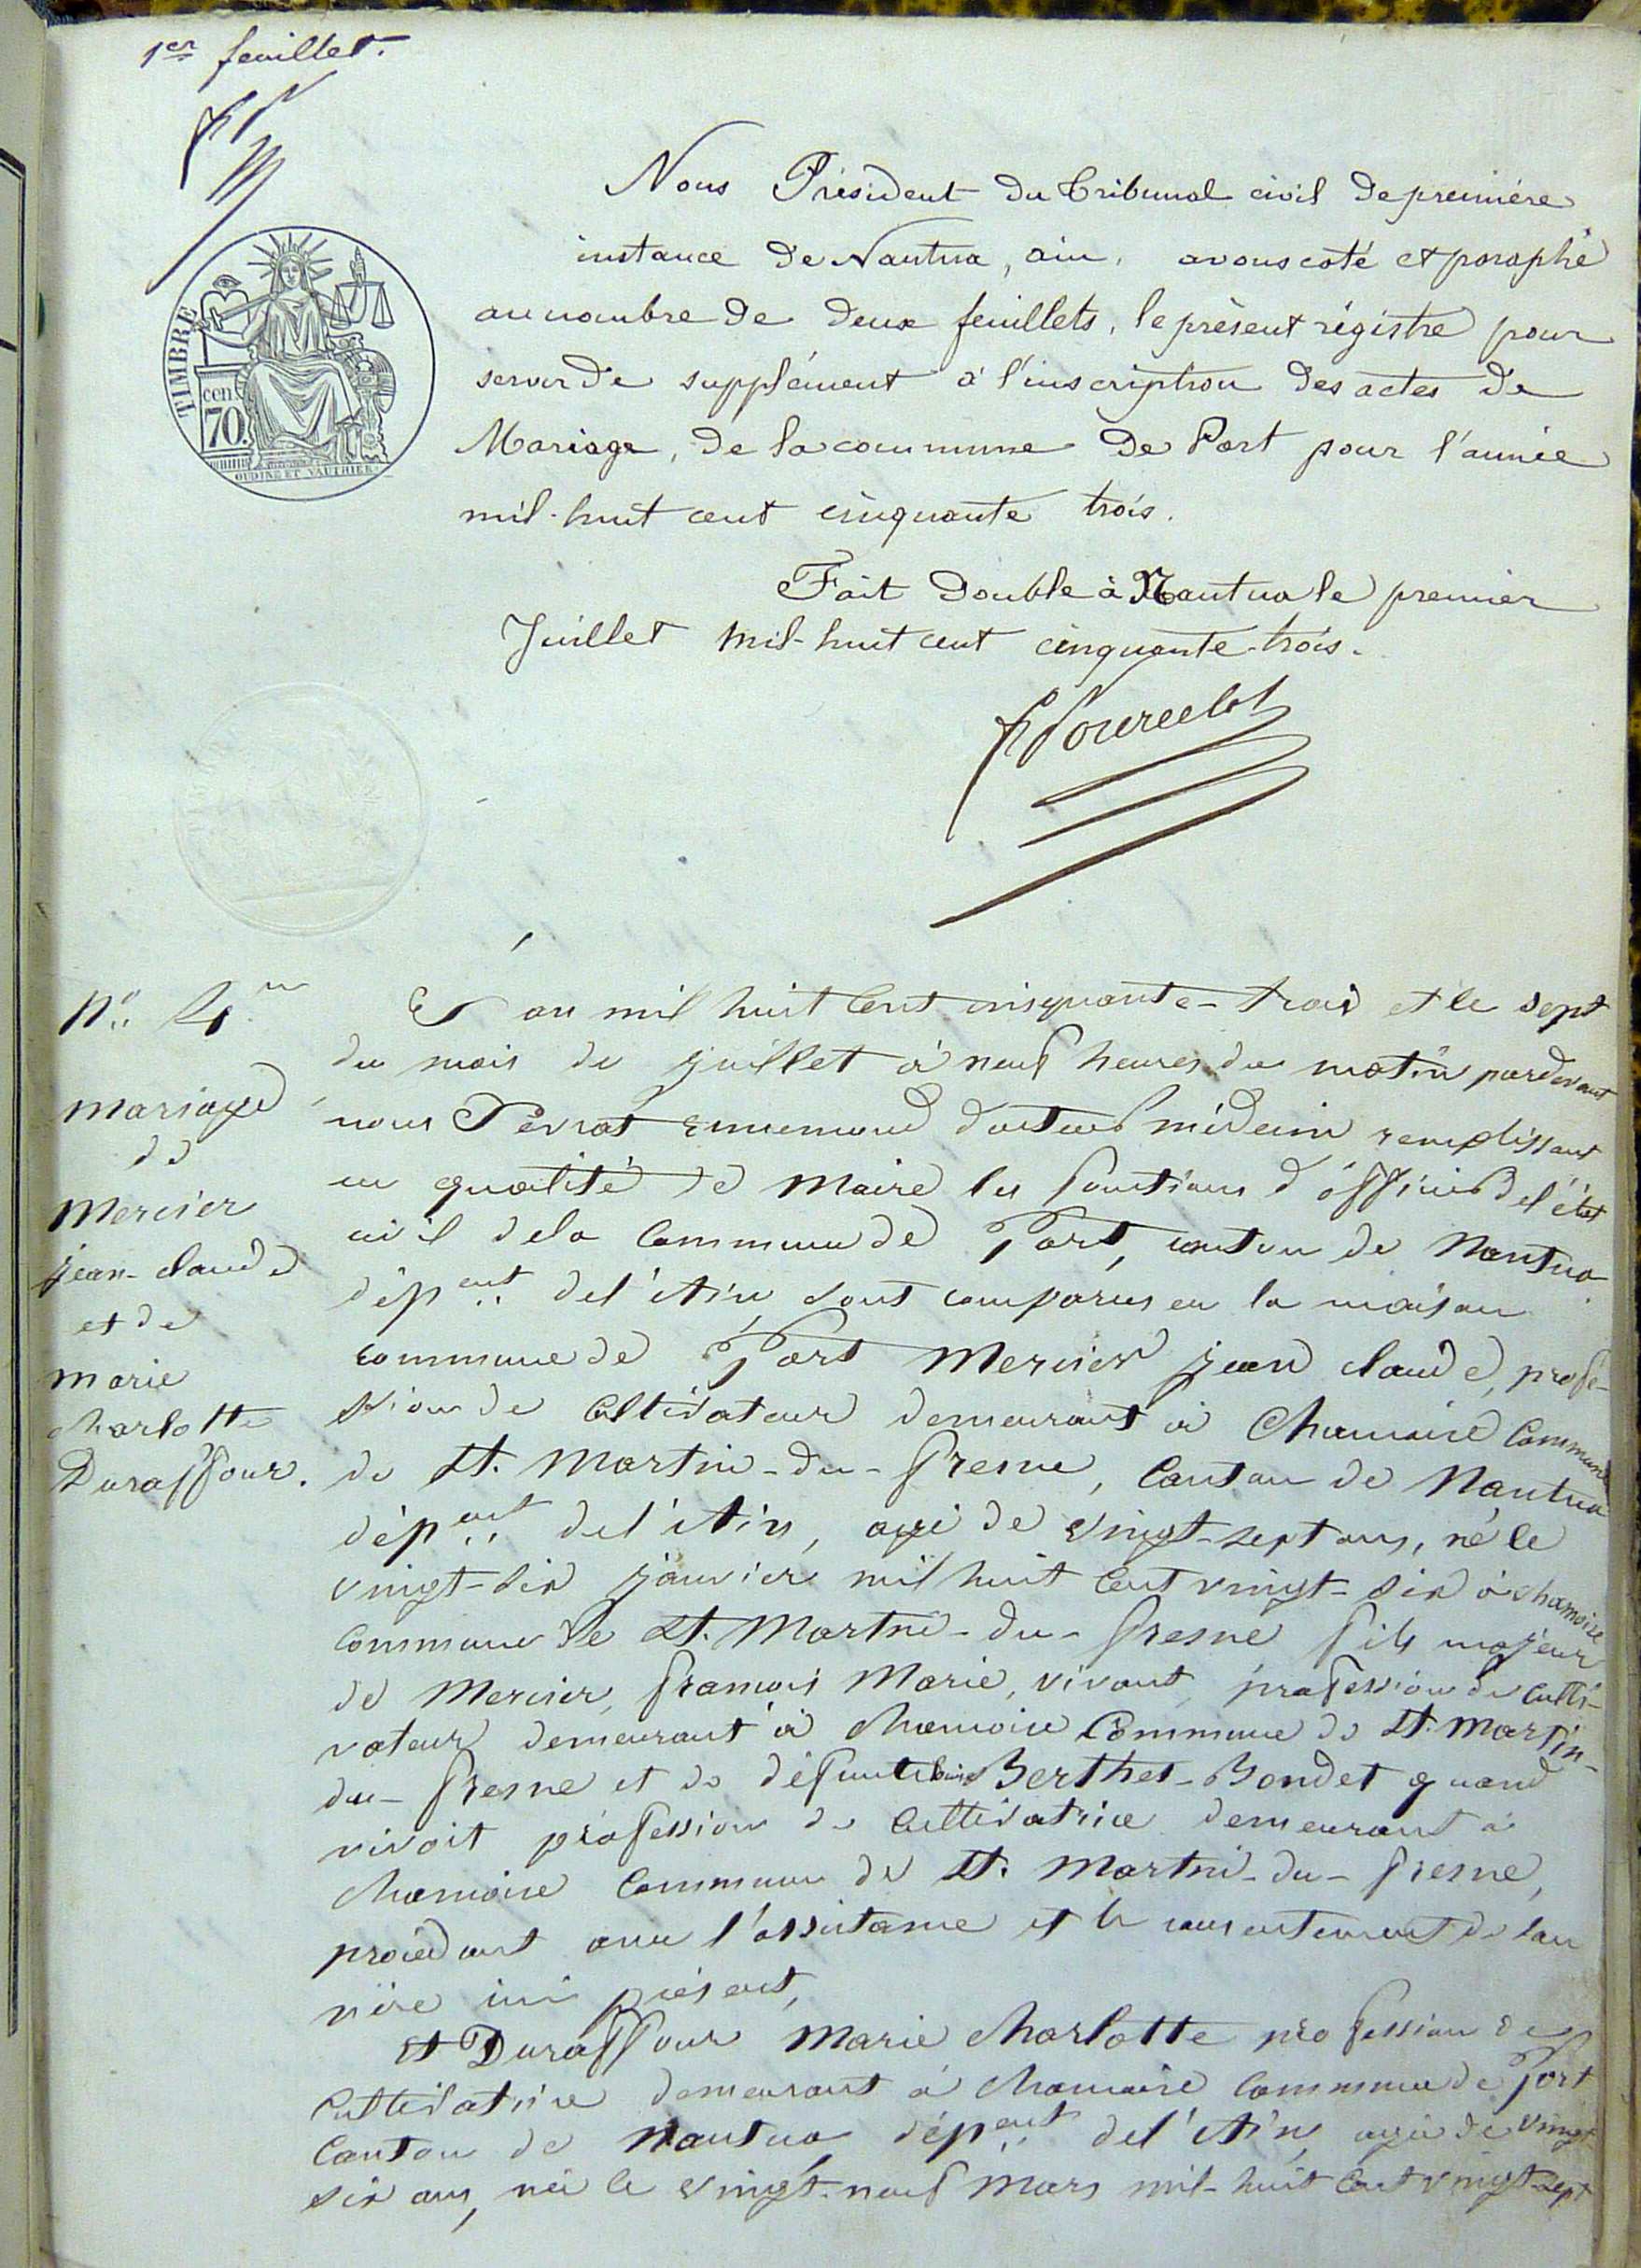 1er feuillet.
Nous Président du Tribunal civil de première
instance de Nantua, ain, avons coté et paraphé
au nombre de deux feuillets, le présent régistre pour
servir de supplément à l'inscription des actes de
Mariage, de la commune de Port pour l'année
mil-huit cent cinquante trois.
Fait double à Nantua le premier
Juillet mil-huit cent cinquante-trois.
TIMBRE
cen.
70.
OUDINE ET VAUTHIER
No. 4
Mariage
de
Mercier
jean-claude
et de
marie
charlotte
Duraffour.
L'an mil huit Cent cinquante-trois et le sept
du mois de juillet à neuf heures du matin pardevant
nous Pévrat Ennemond docteur médecin remplissant
en qualité de Maire les fonctions d'officier de l'état
civil de la Commune de Port, canton de Nantua
dépent. de l'Ain sont comparus en la maison
commune de Port Mercier jean claude, profe-
ssion de Cultivateur demeurant à Chamoise Commune
de St. Martin-du-fresne, Canton de Nantua
dépent. de l'Ain, agé de vingt-sept ans, né le
vingt-six janvier mil huit Cent vingt-six à chamoise
Commune de St. Martin-du-fresne fils majeur
de Mercier, francois Marie, vivant, profession de culti-
vateur demeurant à chamoise Commune de St. Martin-
du-fresne et de défunte Berthet-Bondet quand
vivoit profession de Cultivatrice demeurant à
chamoise Commune de St. Martin-du-fresne,
procédant avec l'assistance et le consentement de son
père ici présent,
Et Duraffour Marie charlotte profession de
Cultivatrice demeurant à chamoise Commune de Port
Canton de Nantua dépent. de l'Ain, agée de vingt
six ans, née le vingt-neuf Mars mil-huit Cent vingt-sept